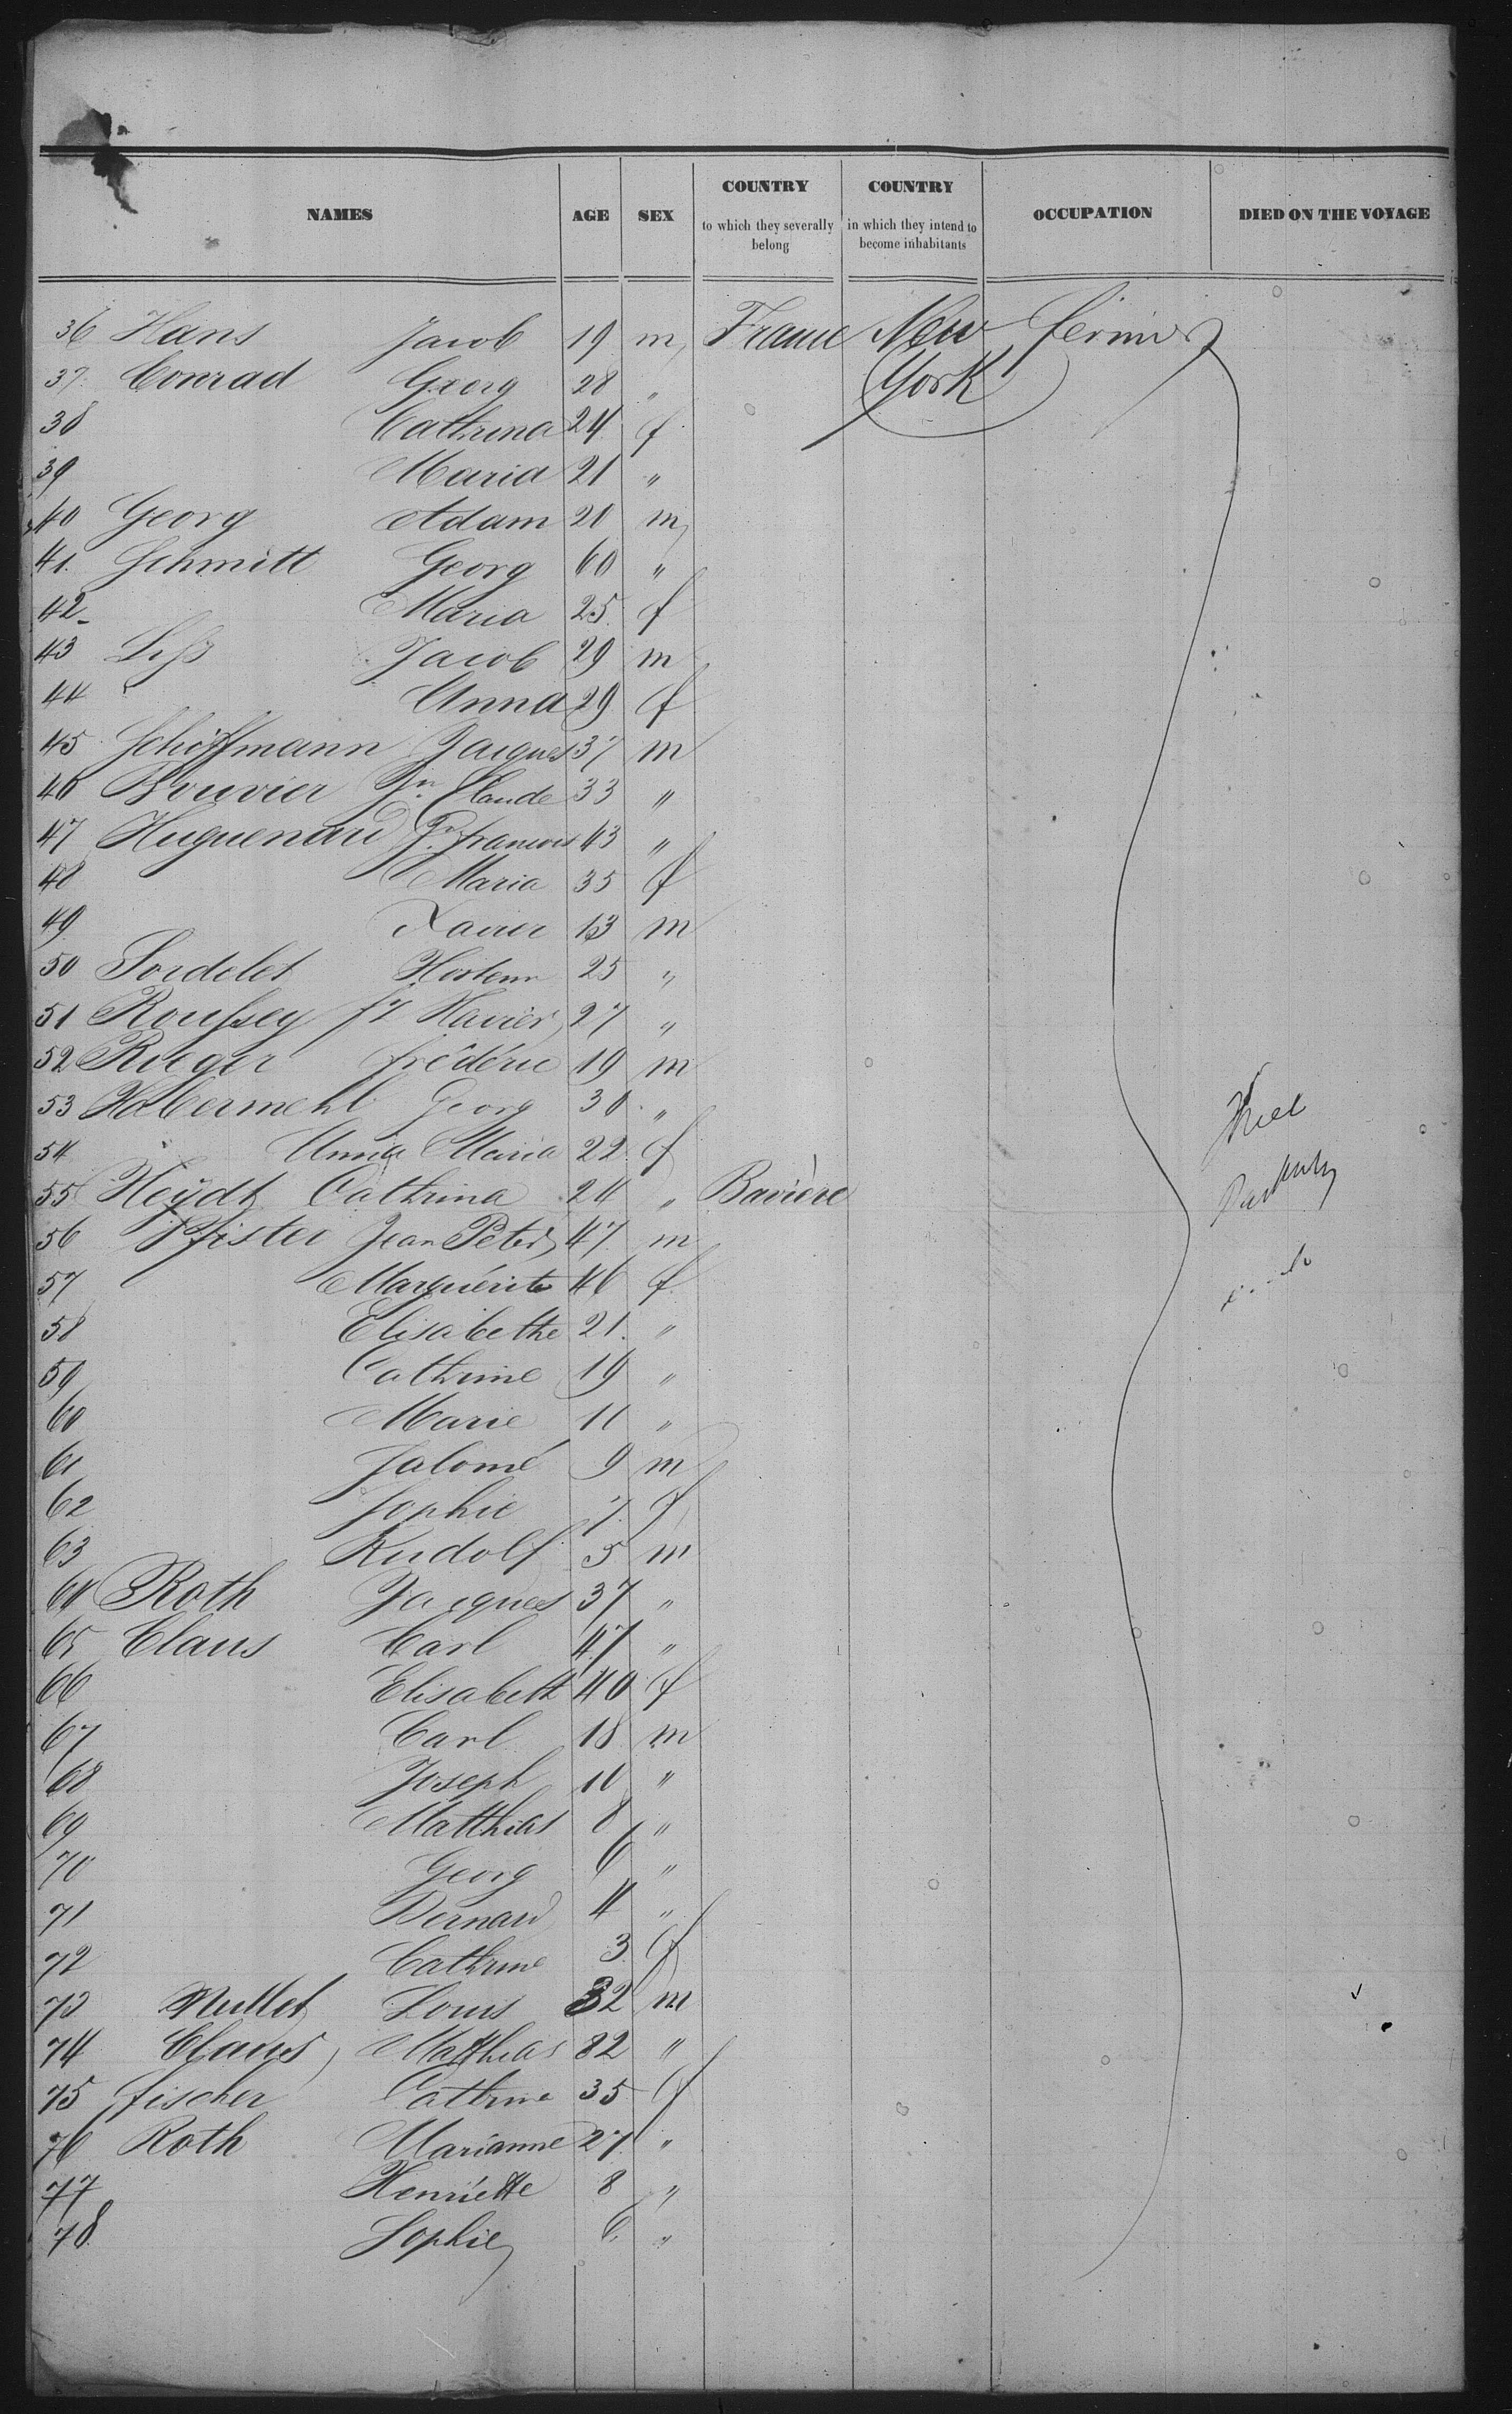 NAMES AGE SEX COUNTRY to which they severally belong COUNTRY in which they intend to become inhabitants OCCUPATION DIED ON THE VOYAGE
36 Hans Jacob 19 m France New
37 Conrad Georg 28 " York
38 Cathrina 24 f
39 Maria 21 "
40 Georg Adam 20 m
41. Schmitt Georg 60 "
42 Maria 25 f
43 Jacob 29 m
44 Anna 29 f
45 Schöffmann Jacques 37 m
46 Bouvier Jn Claude 33 "
47 Huguenard Pr. francois 43 "
48 Maria 35 f
49 Xavier 13 m
50 Sordelet 25 "
51 Roussey fz Xavier 27 "
52 Rieger frédéric 19 m
53 Habermehl Georg 30 "
54 Anna Maria 22 f
55 Heydt Cathrina 24 " Bavière
56 Pfister Jean Peter 47 m
57 Marguérite 46 f
58 Elisabethe 21 "
59 Cathrine 19 "
60 Marie 11 "
61 Salomé 9 m
62 Sophie 7 f
63 Rudolf 5 m
64 Roth Jacques 37 "
65 Claus Carl 47 "
66 Elisabeth 40 f
67 Carl 18 m
68 Joseph 10 "
69 Matthias 8 "
70 Georg 6 "
71 Bernard 4 "
72 Cathrine 3 f
73 Mullet Louis 32 m
74 Claus Matthias 82 "
75 fischer Cathrine 35 f
76 Roth Marianne 27 "
77 Henriette 8 "
78 Sophie 6 "